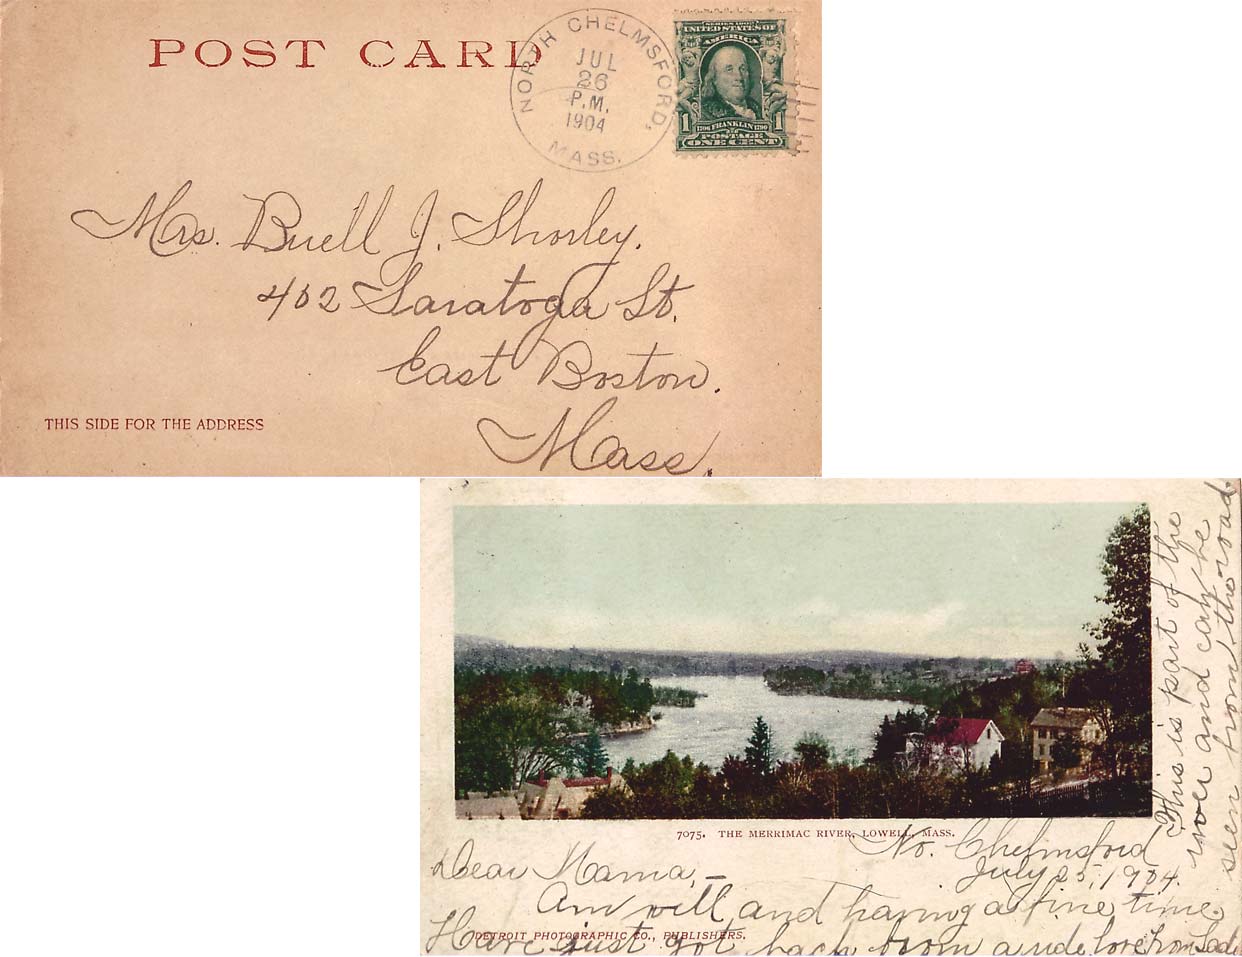 POST CARD
NORTH CHELMSFORD, MASS.
JUL
26
P.M.
1904
SERIES 1902
UNITED STATES OF
AMERICA
1 1706 FRANKLIN 1790 1
POSTAGE
ONE CENT
Mrs. Buell J. Shorley.
402 Saratoga St.
East Boston.
Mass.
THIS SIDE FOR THE ADDRESS
7075. THE MERRIMAC RIVER, LOWELL, MASS.
No. Chelmsford
July 25, 1904.
Dear Mama,—
Am well and having a fine time.
Have just got back from a ride love from
DETROIT PHOTOGRAPHIC CO., PUBLISHERS.
This is part of the
river and can be
seen from the road